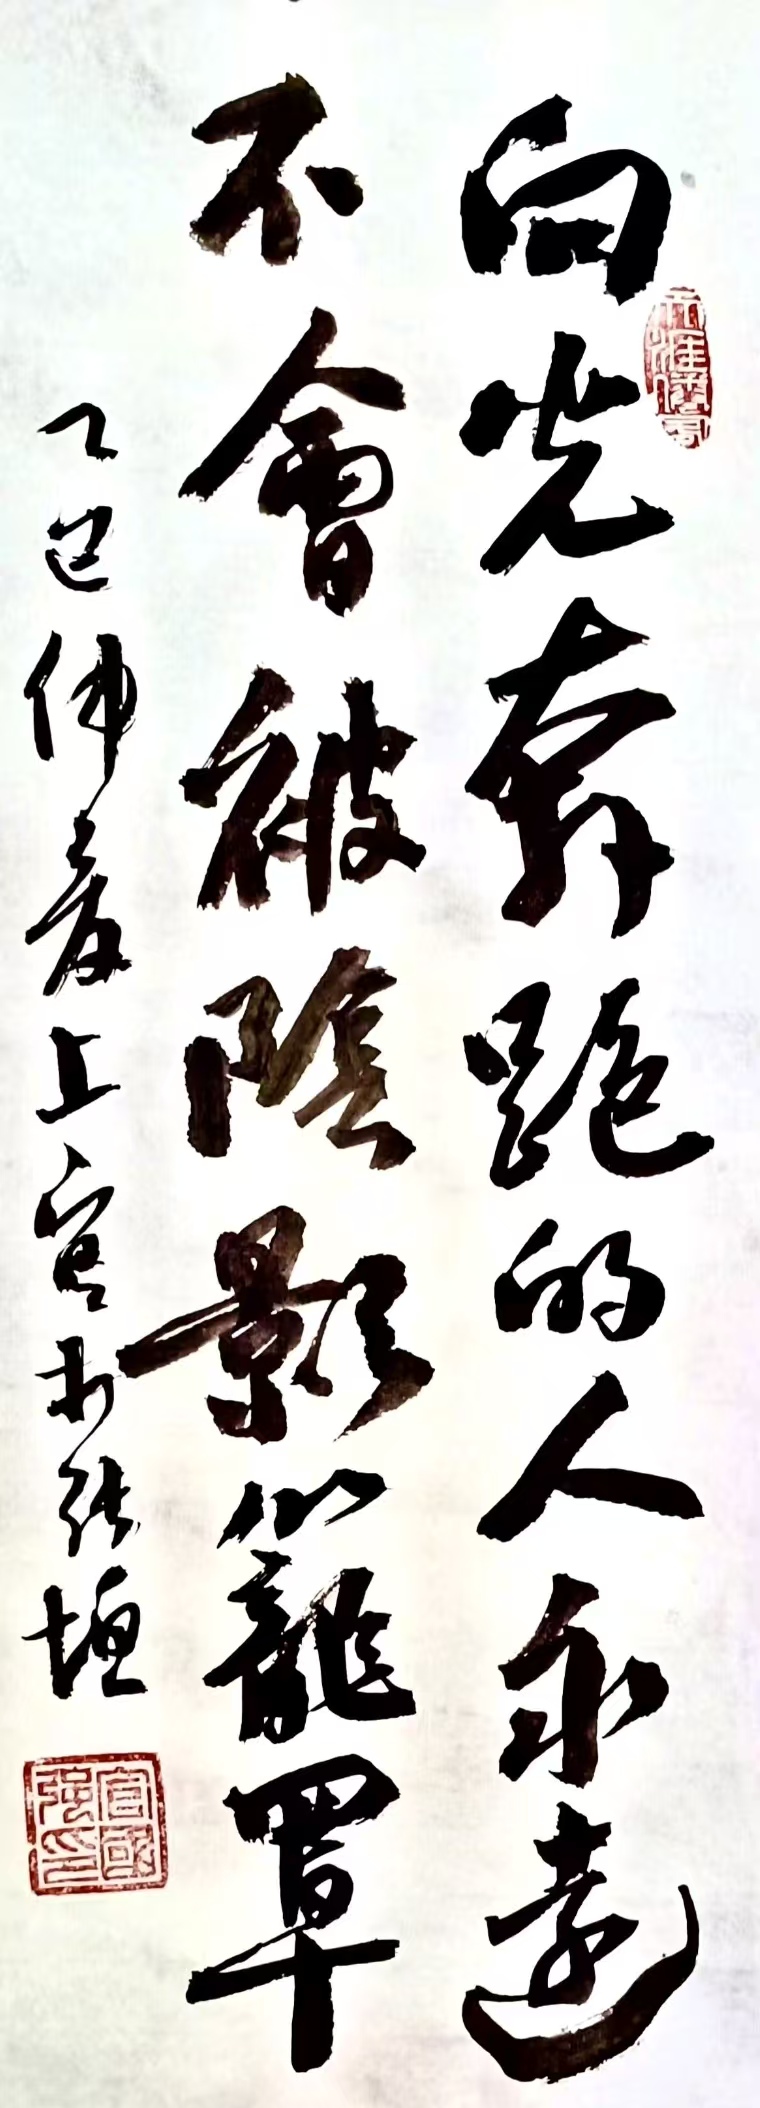 向光奔跑的人永遠
不會被陰影籠罩
乙巳仲夏上官於张垣